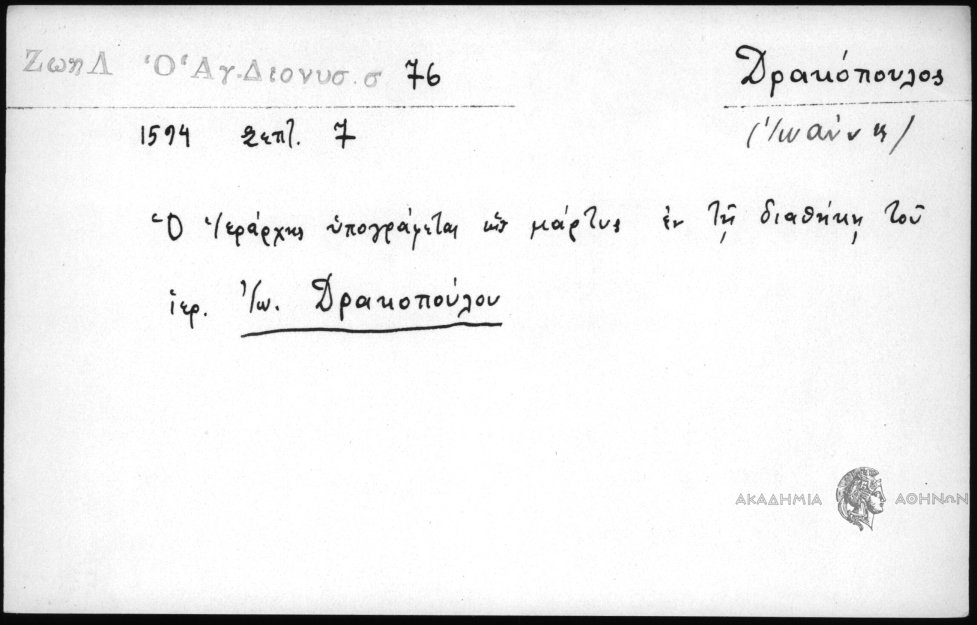 Ζωη Λ Ὁ Ἁγ. Διονυσ. σ 76
Δρακόπουλος
1594 Σεπτ. 7
(Ἰωάννη)
Ὁ Ἱεράρχης ὑπογράφεται ὡς μάρτυς ἐν τῇ διαθήκῃ τοῦ
ἱερ. Ἰω. Δρακοπούλου
ΑΚΑΔΗΜΙΑ ΑΘΗΝΩΝ